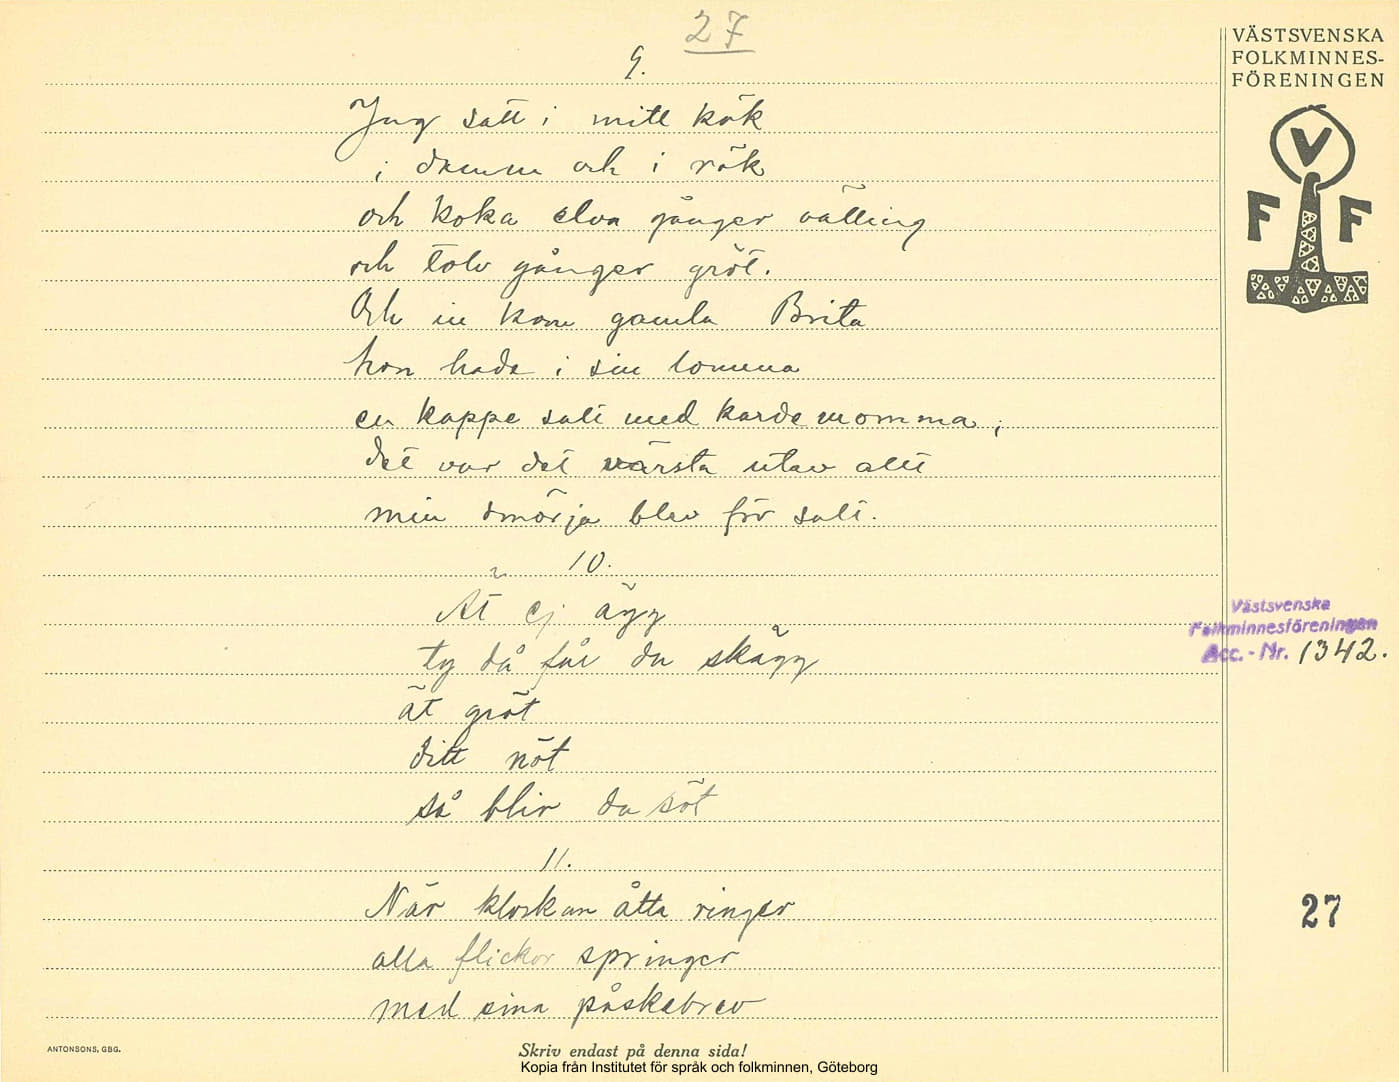 27
9.
Jag satt i mitt kök
i damm och i rök
och koka elva gånger välling
och tolv gånger gröt.
Och in kom gamla Brita
hon hade i sin lomma
en kappe salt med kardemomma,
det var det värsta utav allt
min smörja blev för salt.
10.
Ät ej ägg
ty då får du skägg
ät gröt
ditt nöt
så blir du söt
11.
När klockan åtta ringer
alla flickor springer
med sina påskabrev
VÄSTSVENSKA
FOLKMINNES-
FÖRENINGEN
V
F F
Västsvenska
Folkminnesföreningen
Acc.-Nr. 1342.
27
ANTONSONS, GBG.
Skriv endast på denna sida!
Kopia från Institutet för språk och folkminnen, Göteborg